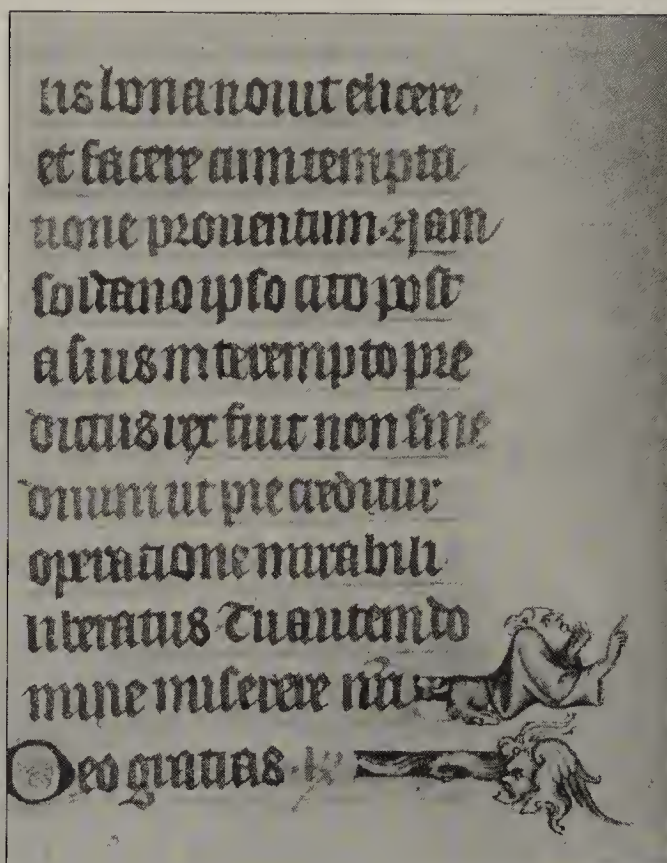 tis bona nouit elicere
et facere cum tempta
tione prouentum. ⁊ iam
soldano ipso cito post
a suis interempto pre
dictus rex fuit non sine
diuini ut pie creditur
operatione mirabili
liberatus. Tu autem do
mine miserere nri
Deo gratias. ℟